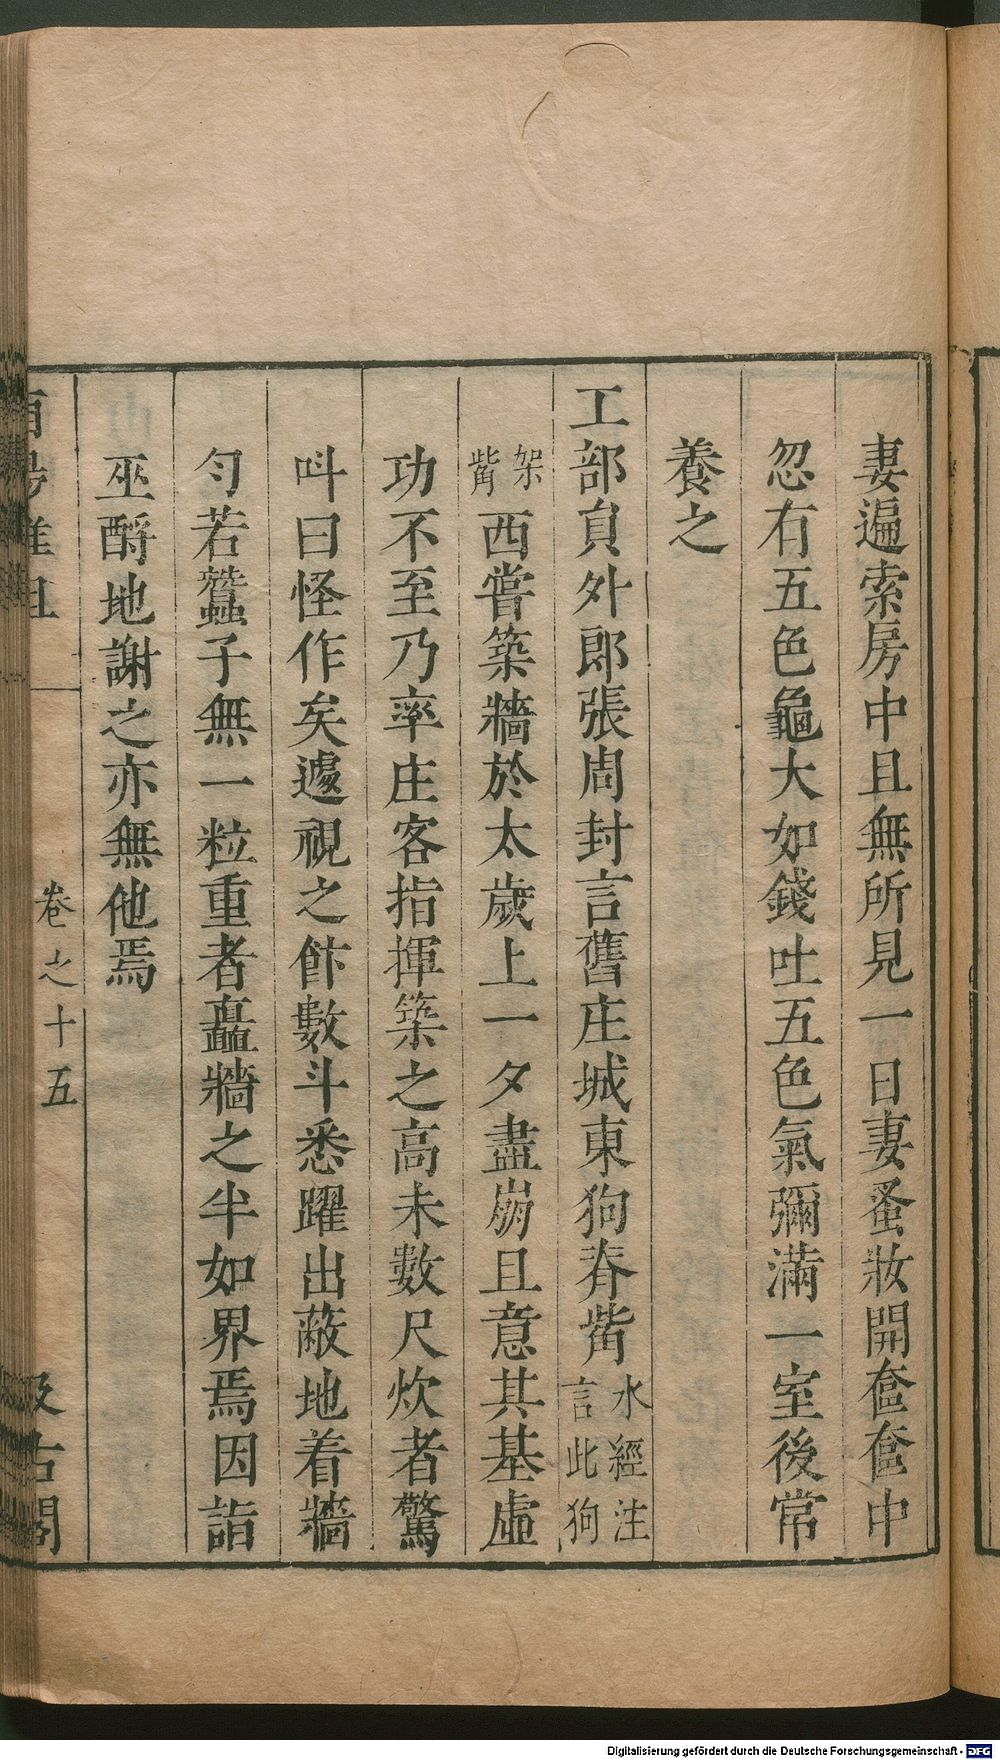 妻遍索房中且無所見一日妻蚤妝開奩奩中
忽有五色龜大如錢吐五色氣彌滿一室後常
養之
工部員外郎張周封言舊庄城東狗脊觜水經注言此狗
架觜西嘗築牆於太歲上一夕盡崩且意其基虛
功不至乃率庄客指揮築之高未數尺炊者驚
叫曰怪作矣遽視之飰數斗悉躍出蔽地着牆
勻若蠶子無一粒重者矗牆之半如界焉因詣
巫酹地謝之亦無他焉
卷之十五
Digitalisierung gefördert durch die Deutsche Forschungsgemeinschaft - DFG